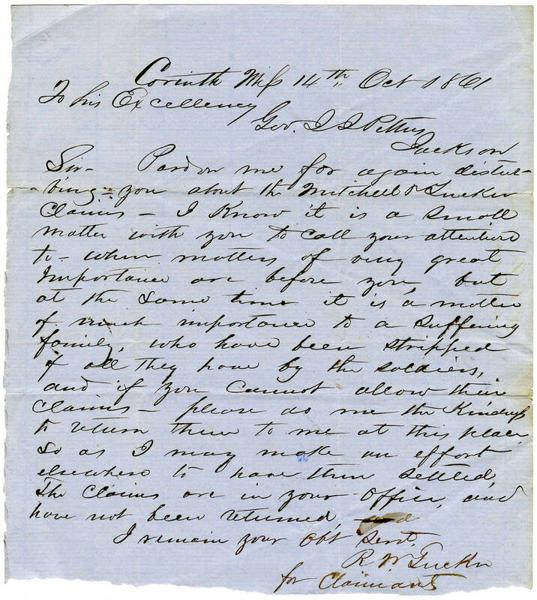 Corinth Miss 14th Oct 1861
To his Excellency
Gov. J J Pettus
Jackson
Sir- Pardon me for again distur-
-bing you about the Mitchell & Tucker
Claims - I Know it is a small
matter with you to call your attention
to - when matters of very great
importance are before you, but
at the same time it is a matter
of much importance to a suffering
family, who have been stripped
of all they have by the soldiers,
and if you cannot allow their
Claims - please do me the Kindness
to return them to me at this place
so as I may make an effort
elsewhere to have them settled,
The Claims are in your office, and
have not been returned,
I remain your Obt Servt.
R W Tucker
for Claimants